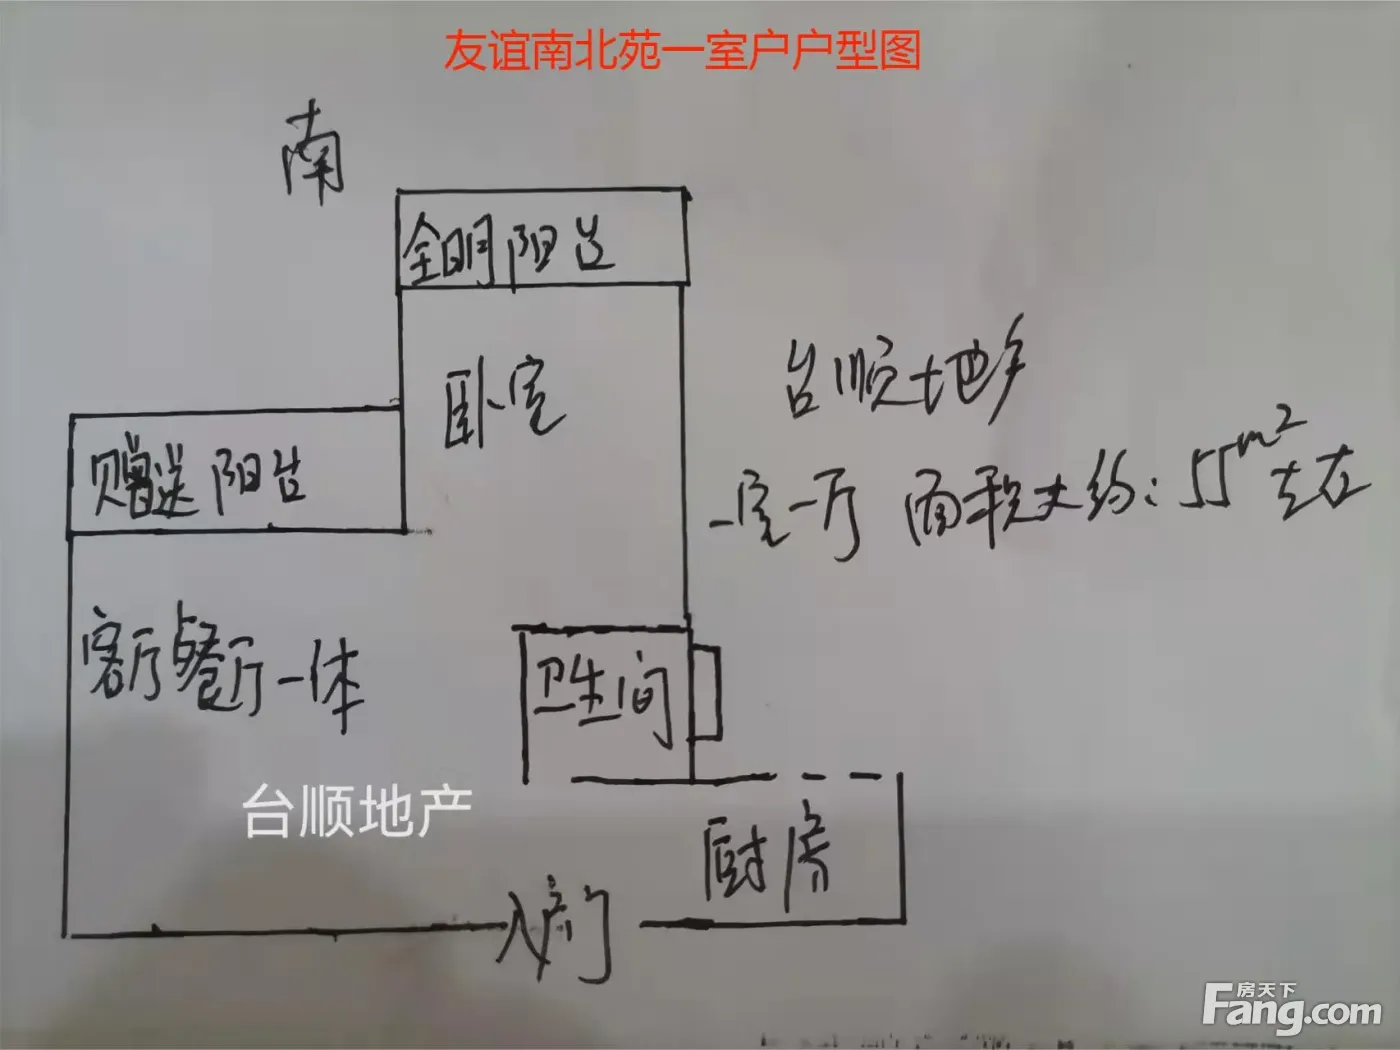 友谊南北苑一室户户型图
南
全明阳台
卧室
台顺地产
赠送阳台
一室一厅 面积大约：55m²左右
客厅与餐厅一体
卫生间
台顺地产
厨房
入户门
房天下
Fang.com